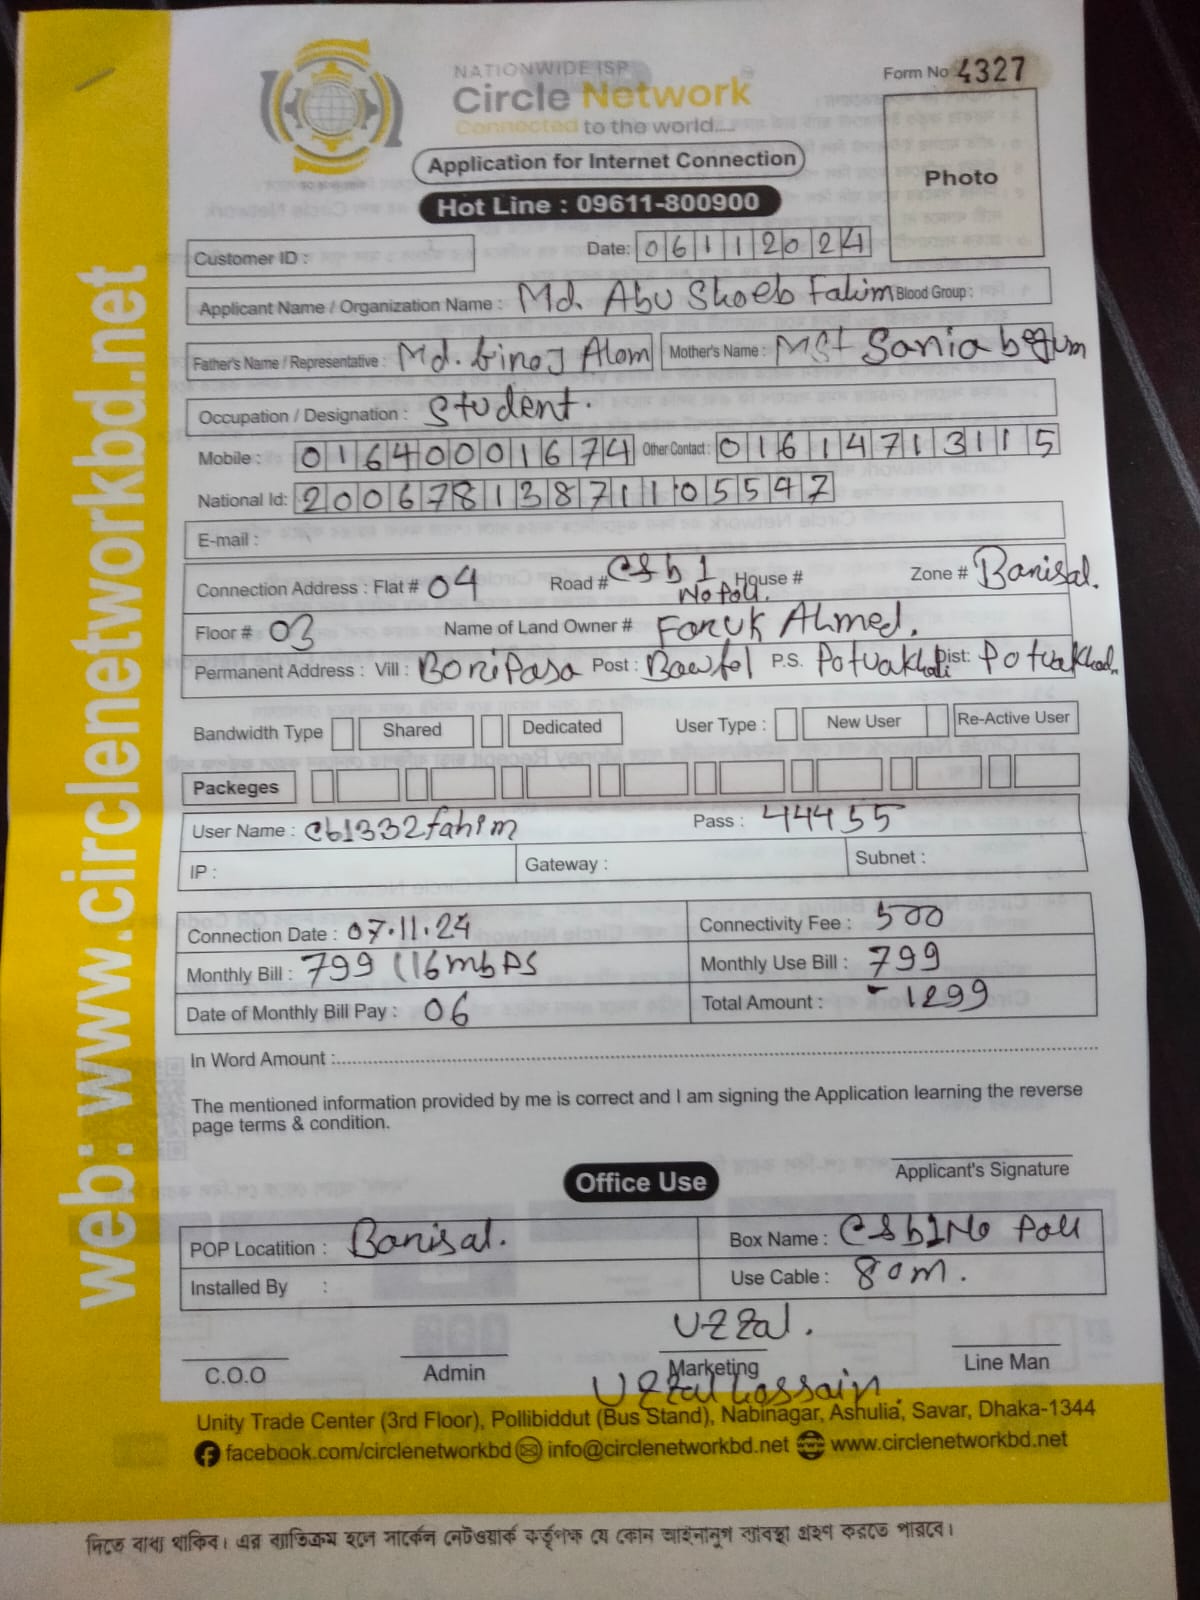 NATIONWIDE ISP
Circle Network
Connected to the world....
Form No 4327
Application for Internet Connection
Photo
Hot Line : 09611-800900
Customer ID :
Date: 06112024
Applicant Name / Organization Name : Md. Abu Shoeb Fahim Blood Group :
Father's Name / Representative : Md. Ginoj Alom Mother's Name : MSt Sonia begum
Occupation / Designation : Student.
Mobile : 01640001674 Other Contact : 01614713115
National Id: 20067813871105547
E-mail :
Connection Address : Flat # 04 Road # CSb1 No Poll. House # Zone # Barisal.
Floor # 03 Name of Land Owner # Faruk Ahmed.
Permanent Address : Vill : BoniPasa Post : Bawfol P.S. Potuakhali Dist: Potuakhali
Bandwidth Type Shared Dedicated User Type : New User Re-Active User
Packeges
User Name : cb1332fahim Pass : 44455
IP : Gateway : Subnet :
Connection Date : 07.11.24 Connectivity Fee : 500
Monthly Bill : 799 (16mbps Monthly Use Bill : 799
Date of Monthly Bill Pay : 06 Total Amount : - 1299
In Word Amount :
The mentioned information provided by me is correct and I am signing the Application learning the reverse
page terms & condition.
Applicant's Signature
Office Use
POP Locatition : Barisal. Box Name : CSb1No Poll
Installed By : Use Cable : 80m.
Uzzal.
C.O.O Admin Marketing Line Man
Uzzal hossain
Unity Trade Center (3rd Floor), Pollibiddut (Bus Stand), Nabinagar, Ashulia, Savar, Dhaka-1344
facebook.com/circlenetworkbd info@circlenetworkbd.net www.circlenetworkbd.net
দিতে বাধ্য থাকিব। এর ব্যতিক্রম হলে সার্কেল নেটওয়ার্ক কর্তৃপক্ষ যে কোন আইনানুগ ব্যবস্থা গ্রহণ করতে পারবে।
web: www.circlenetworkbd.net